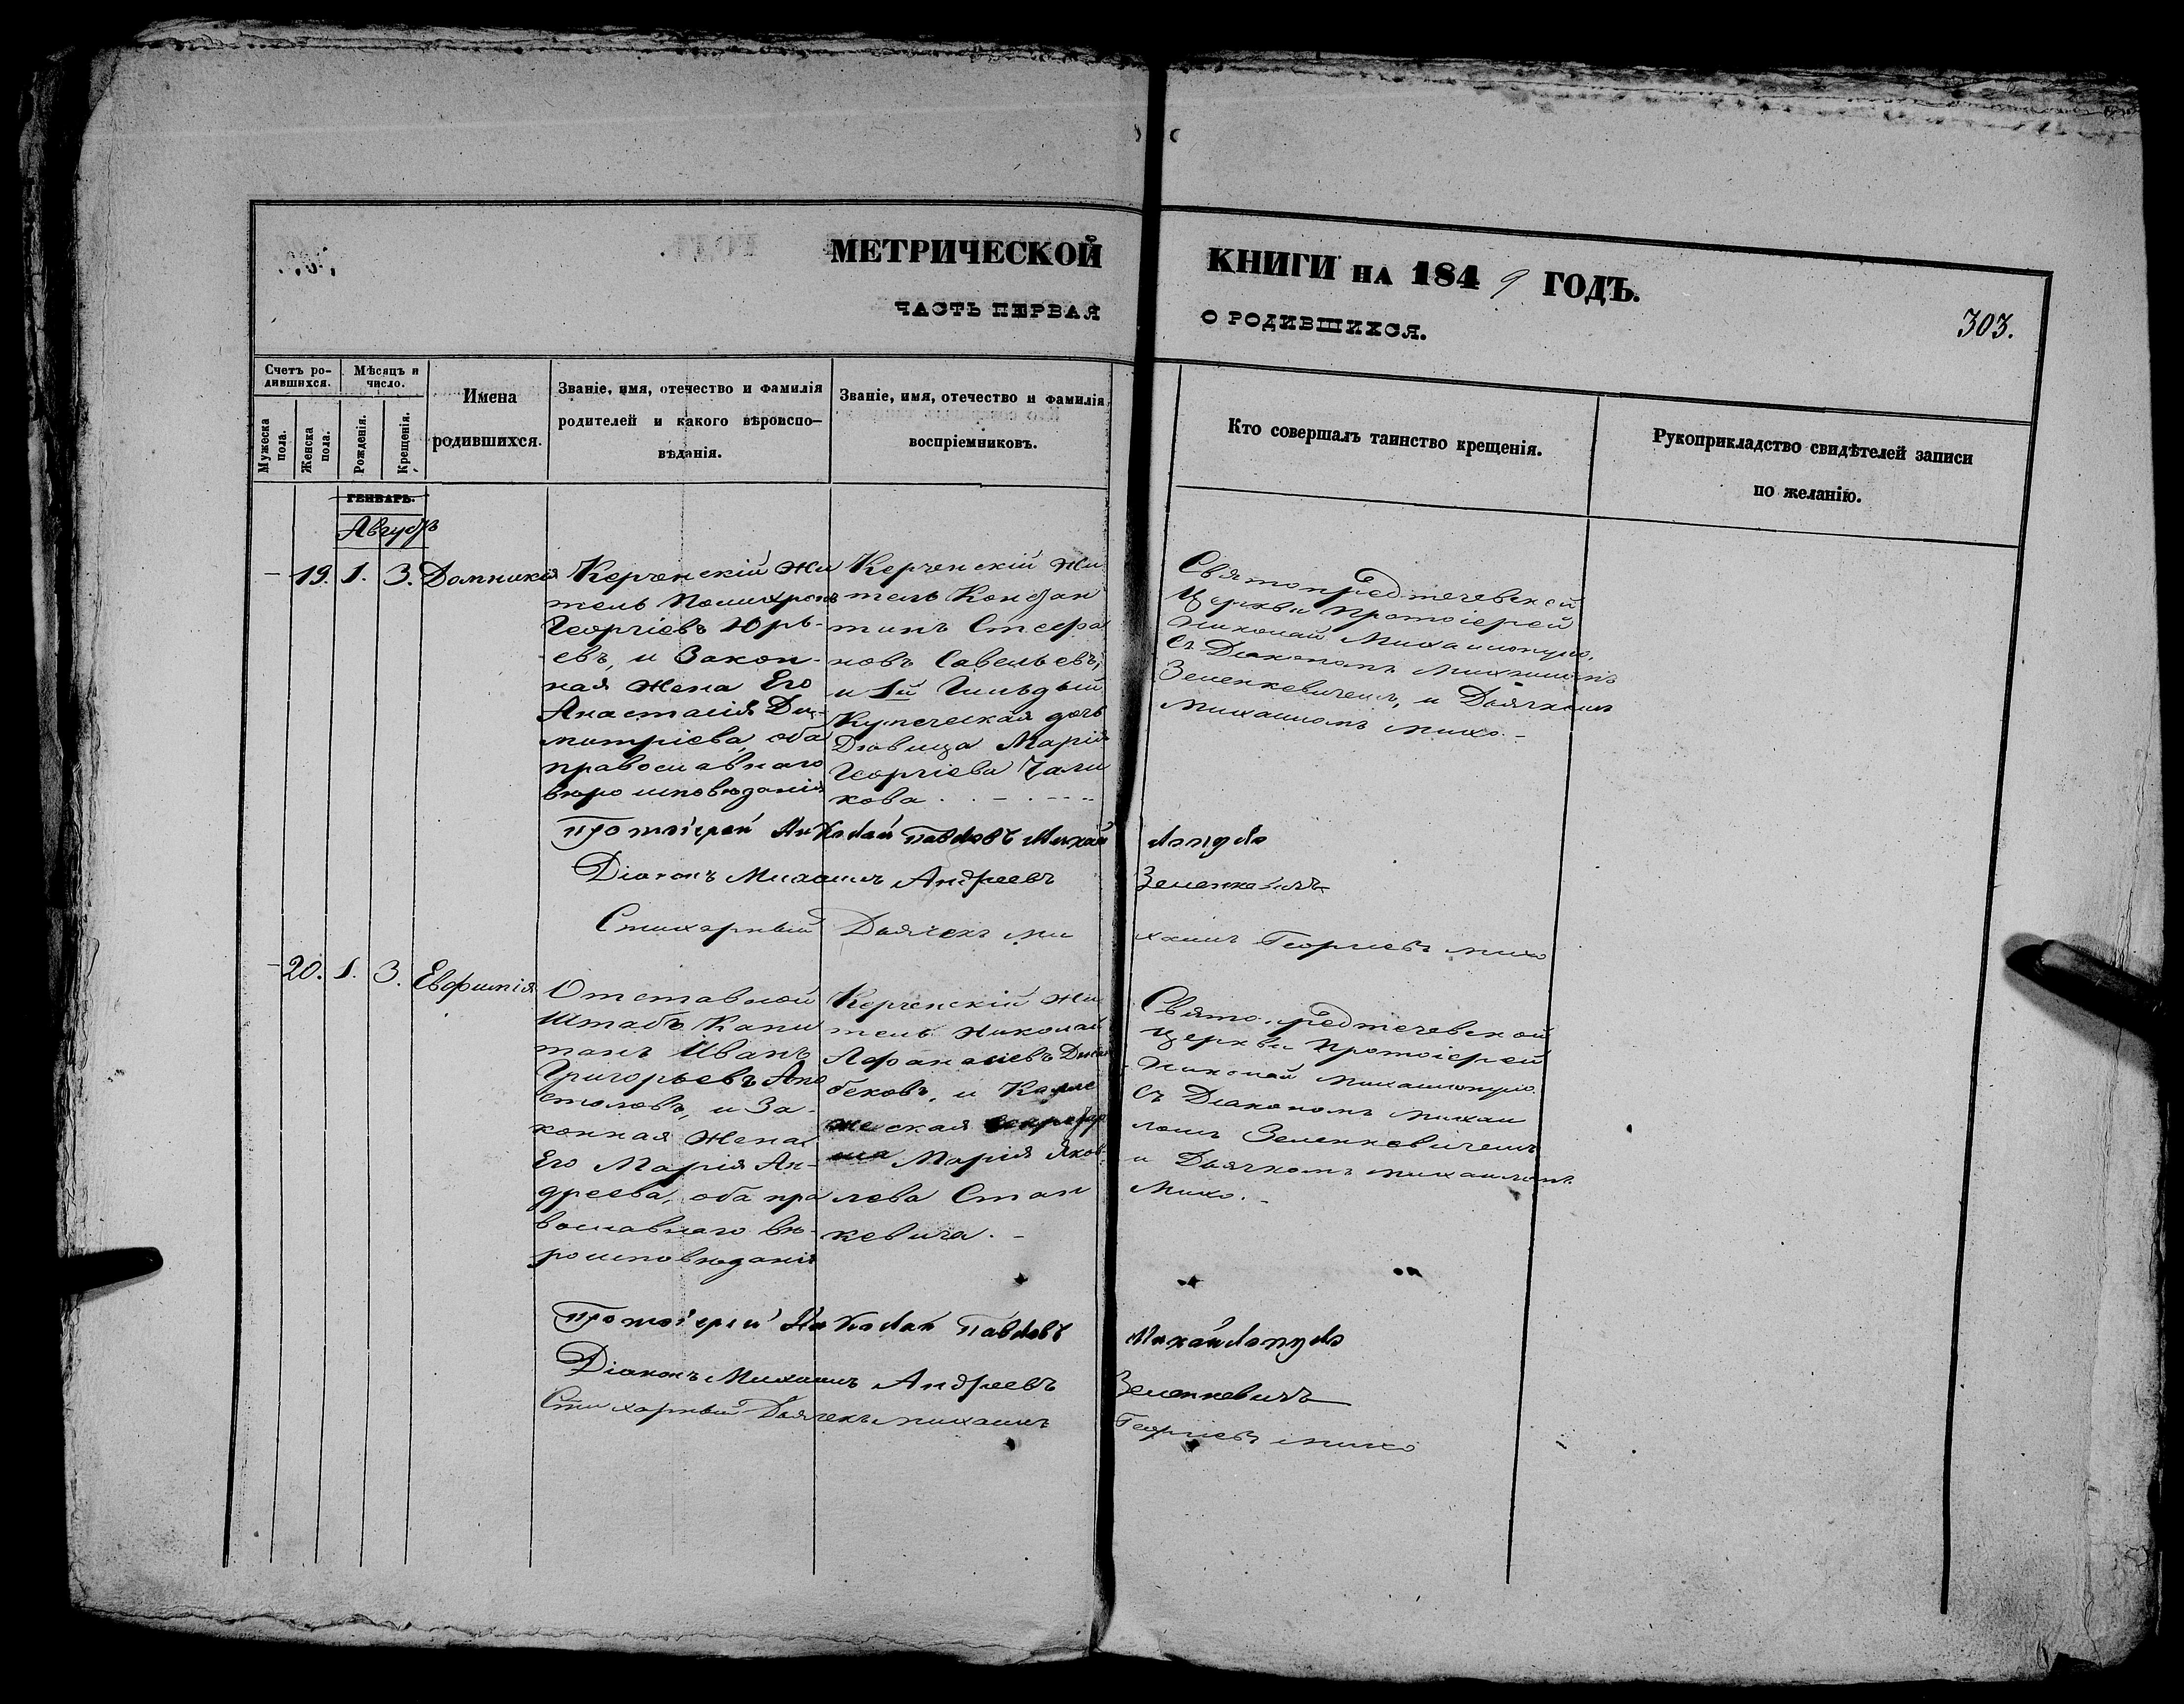 МЕТРИЧЕСКОЙ КНИГИ НА 1849 ГОДЪ.
ЧАСТЬ ПЕРВАЯ О РОДИВШИХСЯ.
303.
Счетъ родившихся.
Мужеска пола.
Женска пола.
Мѣсяцъ и число.
Рожденія.
Крещенія.
Имена
родившихся.
Званіе, имя, отечество и фамилія
родителей и какого вѣроиспо-
вѣданія.
Званіе, имя, отечество и фамилія
воспріемниковъ.
Кто совершалъ таинство крещенія.
Рукоприкладство свидѣтелей записи
по желанію.
ГЕНВАРЬ.
Августъ
- 19. 1. 3. Домникія
Керченскій Жи
тель Полихронъ
Георгіевъ Юрь-
евъ, и Закон-
ная Жена Его
Анастасія Ди-
митріева, оба
православнаго
вѣроисповѣданія
Керченскій Жи
тель Констан
тинъ Стефа
новъ Савельевъ,
и 1й Гильдіи
Купеческая дочь
Дѣвица Марія
Георгіева Чали
кова.
Святопредтечевской
Церкви Протоіерей
Николай Михаилопуло,
съ Діакономъ Михаиломъ
Зеленкевичемъ, и Дьячкомъ
Михаиломъ Михо. -
Протоіерей Николай Павловъ Михайлопуло
Діаконъ Михаилъ Андреевъ Зеленкевичъ
Стихарный Дьячекъ Михаилъ Георгіевъ Михо
- 20. 1. 3. Евфимія
Отставной
Штабъ Капи
танъ Иванъ
Григорьевъ Апо
столовъ, и За-
конная Жена
Его Марія Ан-
дреева, оба пра
вославнаго вѣ-
роисповѣданія
Керченскій Жи
тель Николай
Афанасіевъ
бековъ, и Колле
жеская Секретар
ша Марія Яков-
лева Стан
кевича. -
Святопредтечевской
Церкви Протоіерей
Николай Михаилопуло.
съ Діакономъ Михаи
ломъ Зеленкевичемъ
и Дьячкомъ Михаиломъ
Михо. -
Протоіерей Николай Павловъ Михайлопуло
Діаконъ Михаилъ Андреевъ Зеленкевичъ
Стихарный Дьячекъ Михаилъ Георгіевъ Михо